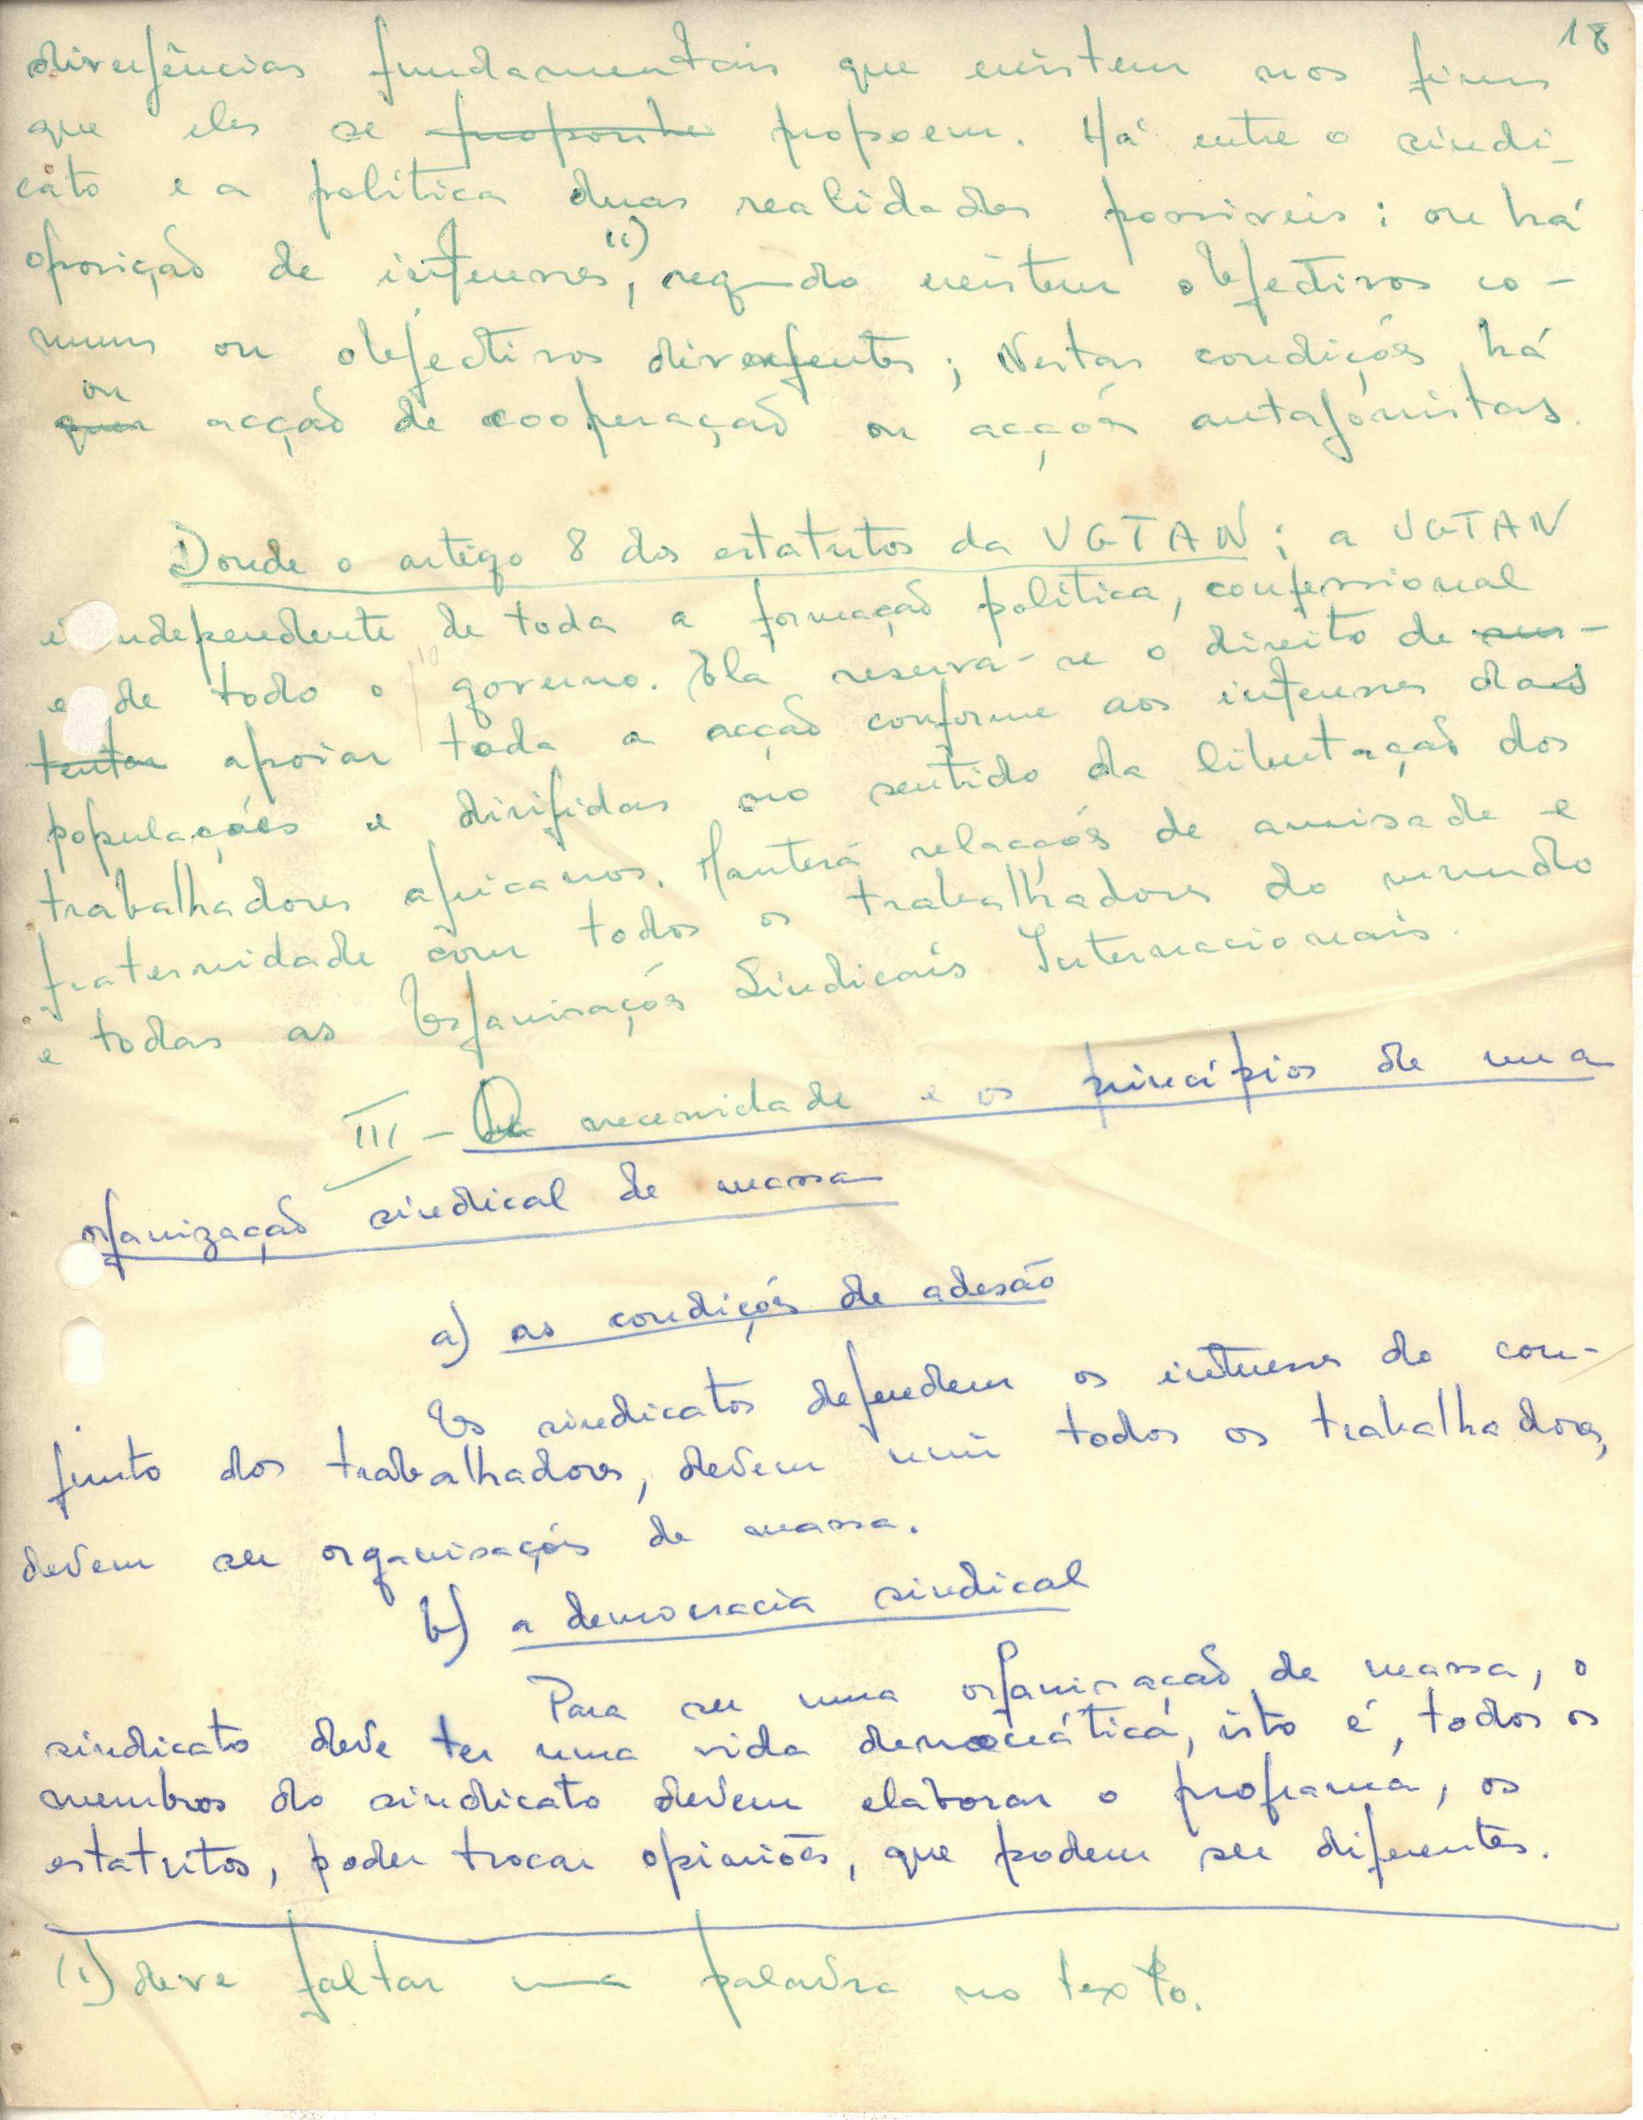 18
divergências fundamentais que existem nos fins
que eles se proponhe propoem. Há entre o sindi-
cato e a política duas realidades possiveis: ou há
oposição de interesses (1), segundo existem objectivos co-
muns ou objectivos divergentes; Nestas condições há
quer ou acção de cooperação ou acções antagónistas.
Donde o artigo 8 dos estatutos da UGTAN: a UGTAN
é independente de toda a formação política, confessional
e de todo o governo. Ela reserva-se o direito de sus-
tentar apoiar toda a acção conforme aos interesses das
populações e dirigidas no sentido da libertação dos
trabalhadores africanos. Manterá relações de amisade e
fraternidade com todos os trabalhadores do mundo
e todas as Organizações Sindicais Internacionais.
III - A necessidade e os princípios de uma
organização sindical de massa
a) as condições de adesão
Os sindicatos defendem os interesses do con-
junto dos trabalhadores, devem unir todos os trabalhadores,
devem ser organisações de massa.
b) a democracia sindical
Para ser uma organização de massa, o
sindicato deve ter uma vida democrática, isto é, todos os
membros do sindicato devem elaborar o programa, os
estatutos, poder trocar opiniões, que podem ser diferentes.
(1) deve faltar uma palavra no texto.